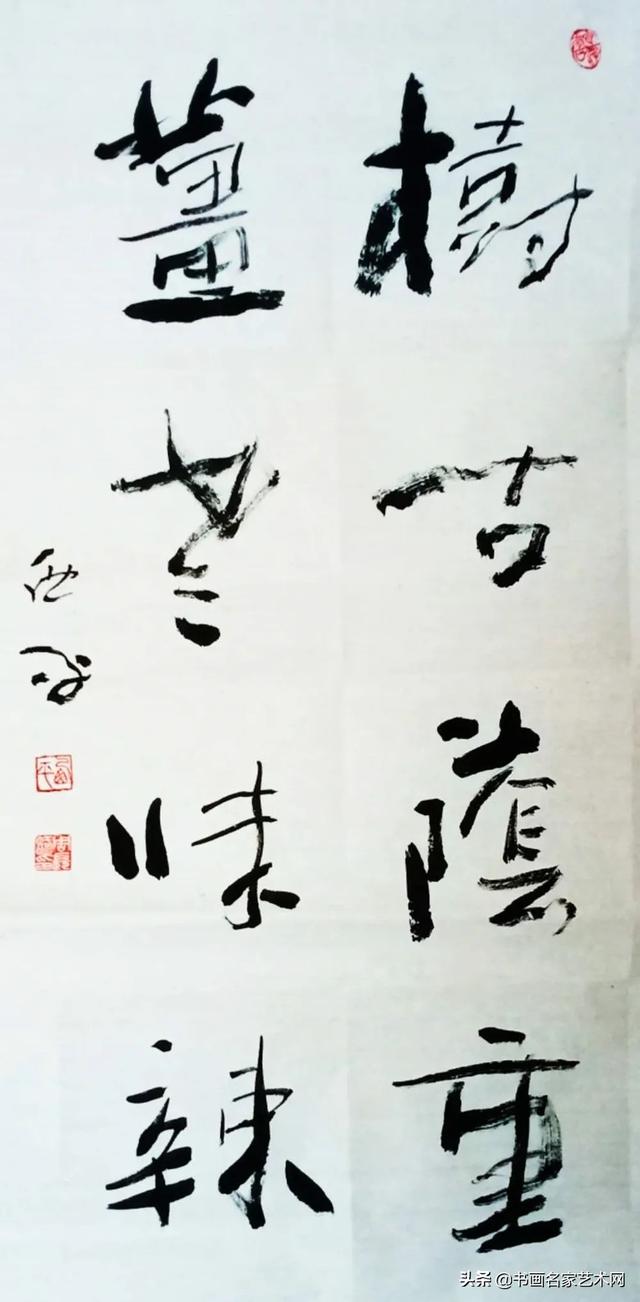 樹古蔭重
薑老味辣
头条 @书画名家艺术网